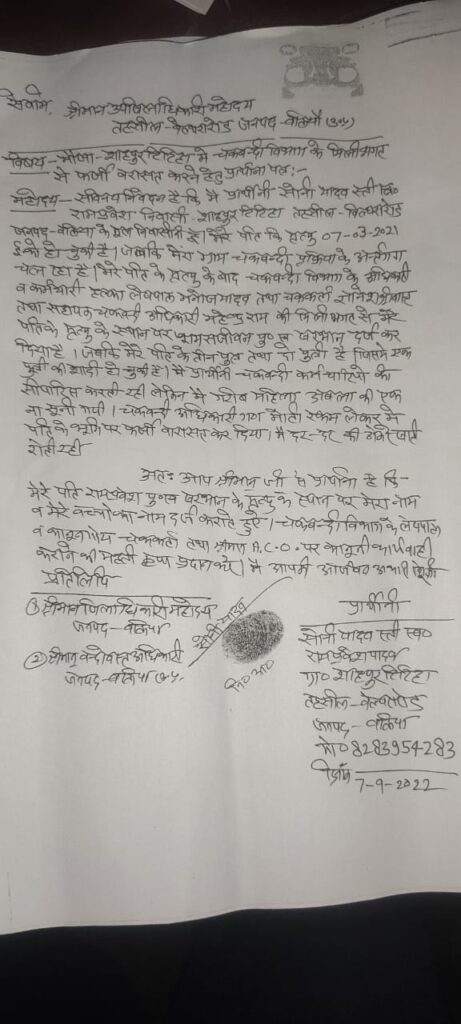 सेवामें, श्रीमान उपजिलाधिकारी महोदय
तहसील - बेल्थरारोड जनपद - बलिया (उ०प्र०)
विषय - मौजा - शाहपुर टिटिहा में चकबन्दी विभाग के मिलीभगत
से फर्जी वरासत करने हेतु प्रार्थना पत्र :-
महोदय - सविनय निवेदन है कि मैं प्रार्थीनी सोनी यादव स्त्री स्व०
रामप्रवेश निवासी - शाहपुर टिटिहा तहसील - बिल्थरारोड
जनपद - बलिया के मूल निवासीनी हूँ। मेरे पति कि मृत्यु 07-03-2021
ई० को हो चुकी है। जबकि मेरा ग्राम - चकबन्दी प्रक्रिया के अन्तर्गत
चल रहा है। मेरे पति के मृत्यु के बाद चकबन्दी विभाग के अधिकारी
व कर्मचारी हल्का लेखपाल यादव तथा चकबन्दी
तथा सहायक चकबन्दी अधिकारी महेन्द्र राम की मिली भगत से मेरे
पति के मृत्यु के स्थान पर रामसजीवन पुत्र सूरभान दर्ज कर
दिया है। जबकि मेरे पति के तीन पुत्र तथा दो पुत्री है जिसमे एक
पुत्री की शादी हो चुकी है। मैं प्रार्थीनी चकबन्दी कर्मचारियों को
करती रही लेकिन मैं गरीब महिला अबला की एक
ना सुनी गयी। चकबन्दी अधिकारी गण मोटी रकम लेकर मेरे
पति के भूमि पर फर्जी वारासत कर दिया। मैं दर-दर की ठोकरे खाती
रोती रही
अतः आप श्रीमान जी से प्रार्थना है कि -
मेरे पति रामप्रवेश पुत्र स्व० सूरभान के मृत्यु के स्थान पर मेरा नाम
व मेरे बच्चो का नाम दर्ज कराते हुए। चकबन्दी विभाग के लेखपाल
व कानूनगोय - चकबन्दी तथा श्रीमान A.C.O. पर कानूनी कार्यवाही
करने की महती कृपा प्रदान करें। मैं आपकी आजीवन आभारी रहूंगी
प्रतिलिपि
① श्रीमान जिलाधिकारी महोदय
जनपद - बलिया
② श्रीमान बन्दोबस्त अधिकारी
जनपद - बलिया उ०प्र०
सोनी यादव
नि० अं०
प्रार्थीनी
सोनी यादव स्त्री स्व०
रामप्रवेश यादव
ग्रा० शाहपुर टिटिहा
तहसील - बेल्थरारोड
जनपद - बलिया
मो० 8283954283
दिनांक
7-9-2022